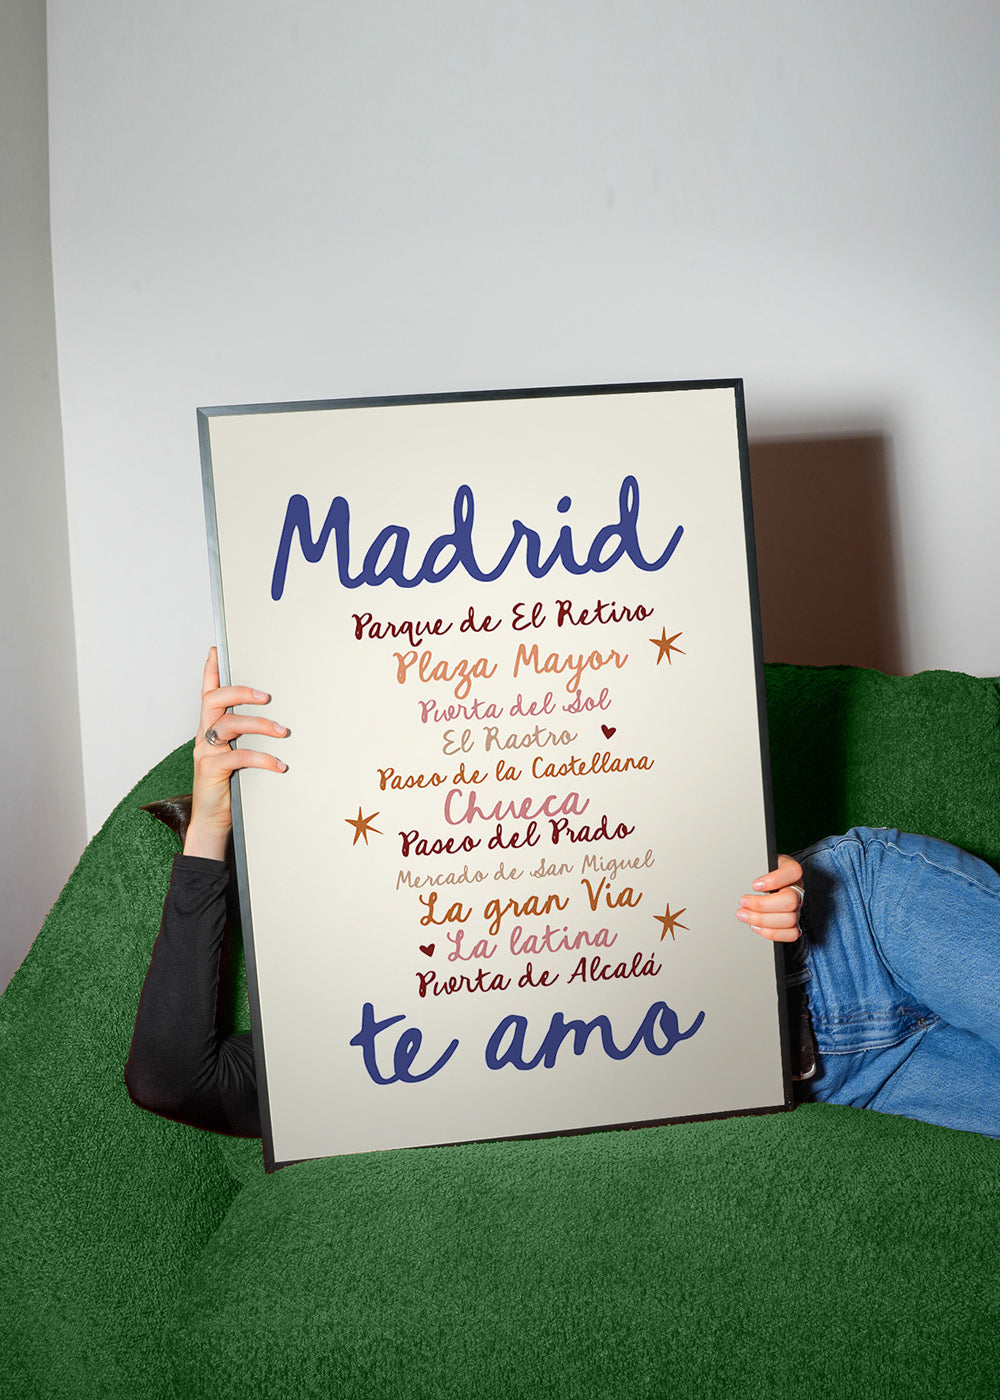 Madrid
Parque de El Retiro
Plaza Mayor
Puerta del Sol
El Rastro
Paseo de la Castellana
Chueca
Paseo del Prado
Mercado de San Miguel
La gran Via
La latina
Puerta de Alcalá
te amo